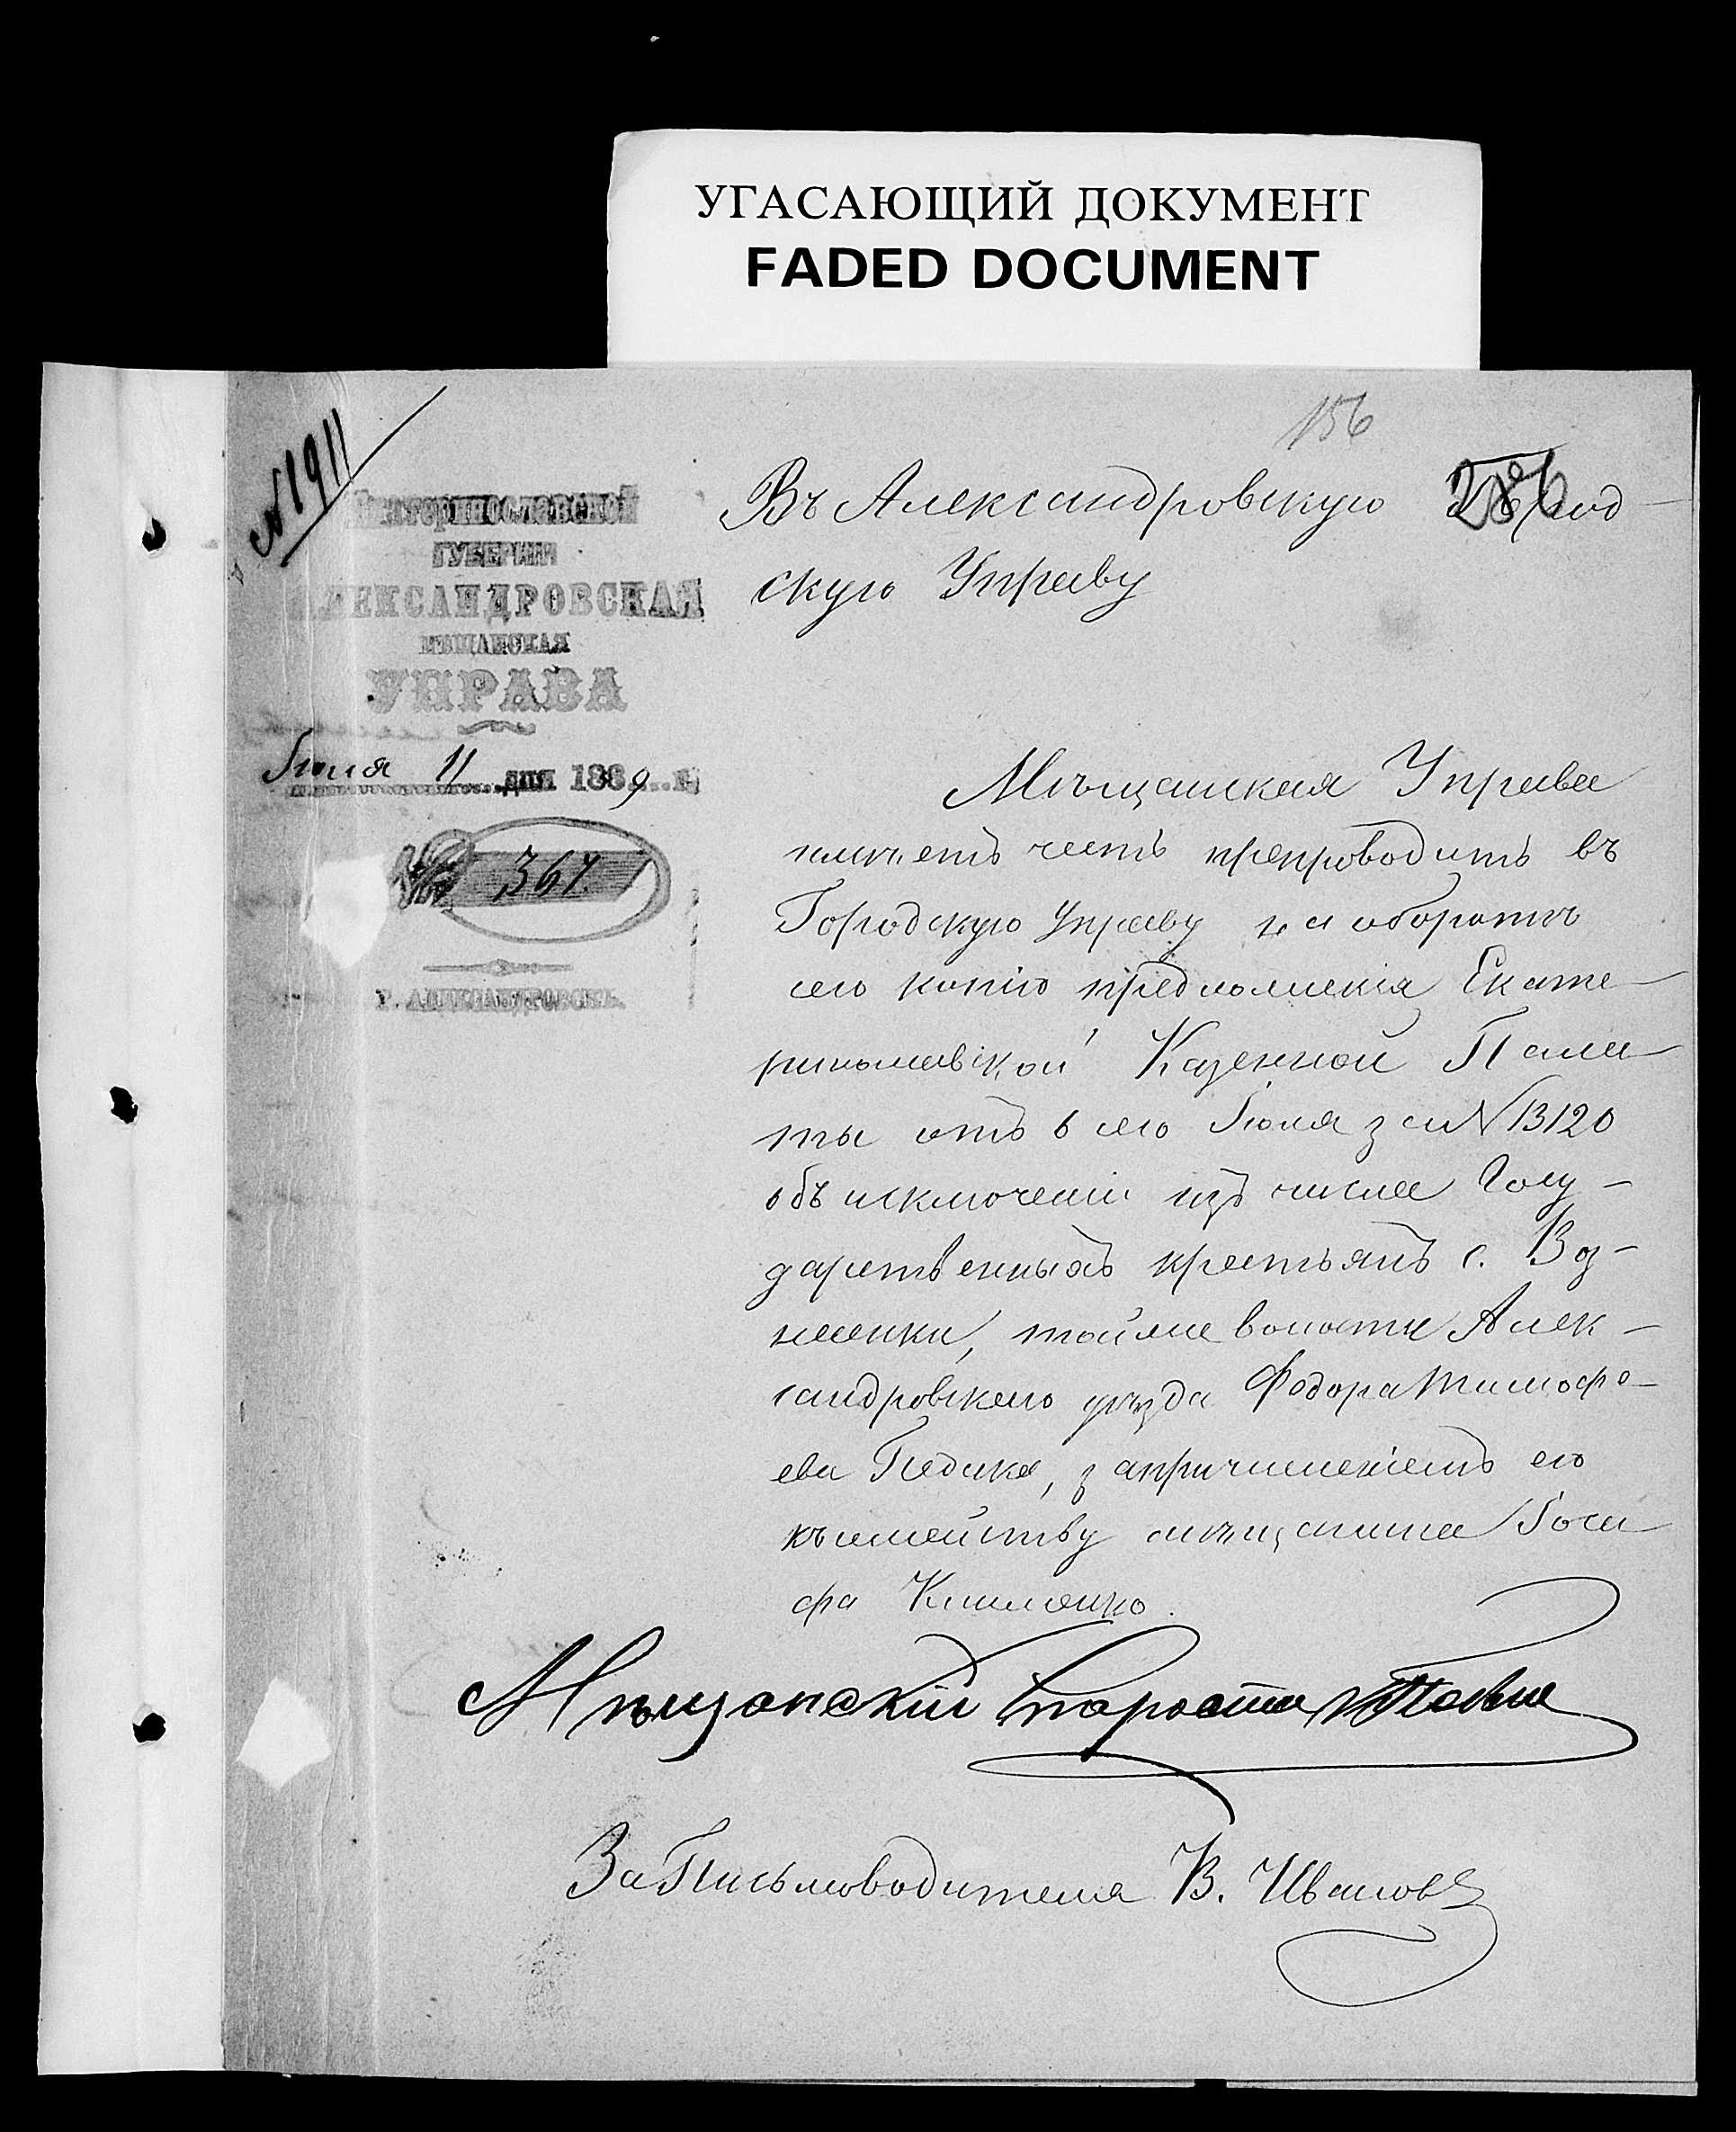 УГАСАЮЩИЙ ДОКУМЕНТ
FADED DOCUMENT
156
№ 1911
286
Екатеринославской
ГУБЕРНІИ
АЛЕКСАНДРОВСКАЯ
МѢЩАНСКАЯ
УПРАВА
Іюля 11 дня 1889 г.
№ 367.
Г. АЛЕКСАНДРОВСКЪ.
Въ Александровскую Город-
скую Управу
Мѣщанская Управа
имѣетъ честь препроводить въ
Городскую Управу на оборотѣ
сего копію предложенія Екате-
ринославской Казенной Пала-
ты отъ 6 сего Іюля за № 13120
объ исключеніи изъ числа Госу-
дарственныхъ крестьянъ с. Воз-
несенки, тойже волости Алек-
сандровскаго уѣзда Федора Тимофе-
ева Гедика, за причисленіемъ его
къ семейству мѣщанина Іоси-
фа Клименко.
Мѣщанскій Староста
За Письмоводителя В. Ивановъ